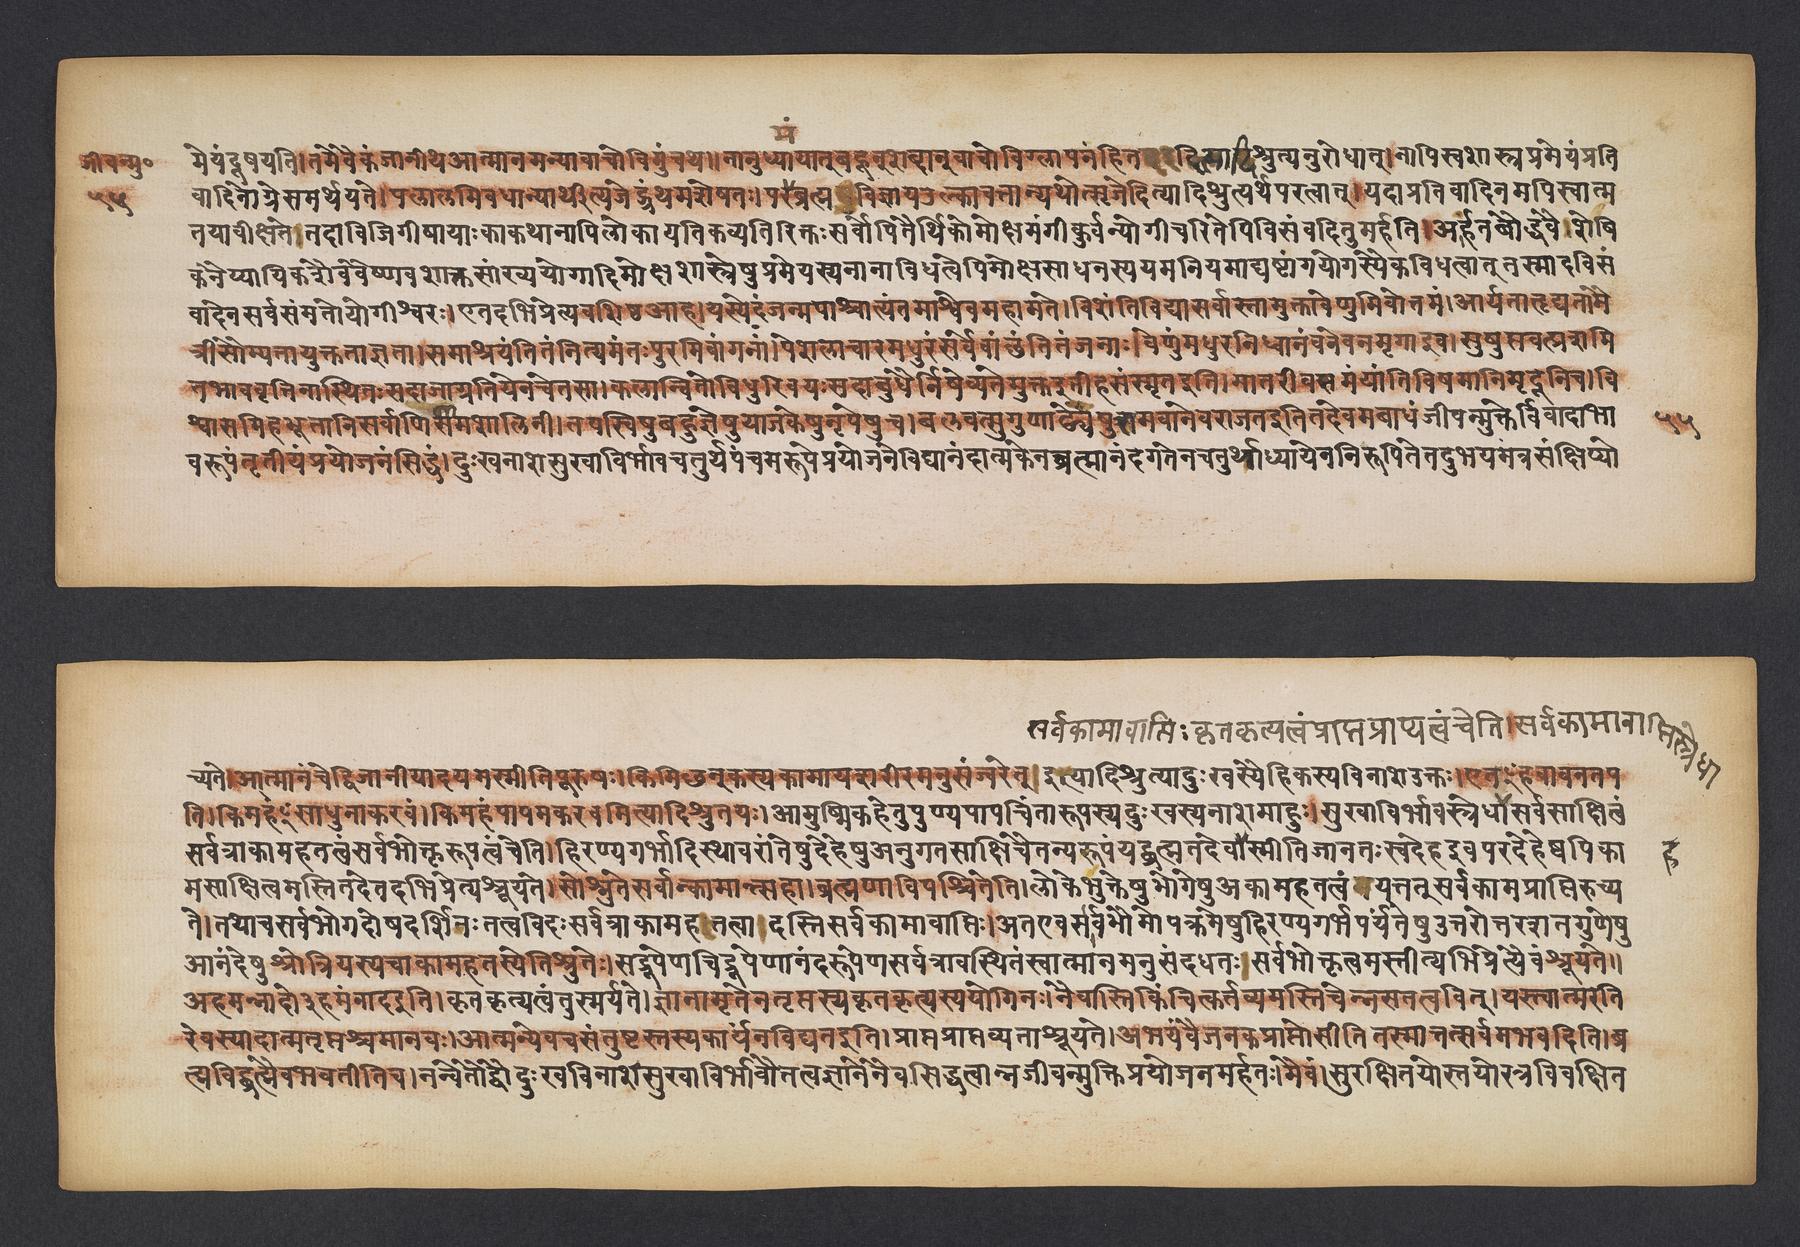 मं
जीवन्मु०
५५
मेयंदूषयति।तमेवैकंजानीथआत्मानमन्यावाचोविमुंचथ॥नानुध्यायातूबहून्शब्दान्वाचोविग्लापनंहित दित्यादिश्रुत्यनुरोधात्।नापिस्वशास्त्रप्रमेयंप्रति
वादिनोग्रेसमर्थयते।पलालमिवधान्यार्थीत्यजेद्ग्रंथमशेषतः।परंब्रह्म विज्ञायउल्कावत्तान्यथोत्सृजेदित्यादिश्रुत्यर्थपरत्वात्।यदाप्रतिवादिनमपिस्वात्म
तयावीक्षते।तदाविजिगीषायाःकाकथानापिलोकायतिकव्यतिरिक्तःसर्वोपितैर्थिकोमोक्षमंगीकुर्वन्योगीचरितेपिविसंवदितुमर्हति।अर्हतबौद्धवैशेषि
कनैय्यायिकशैववैष्णवशाक्तसांख्ययोगादिमोक्षशास्त्रेषुप्रमेयस्यनानाविधत्वेपिमोक्षसाधनस्ययमनियमाद्यष्टांगयोगस्यैकविधत्वात्तस्मादविसं
वादेनसर्वसंमतोयोगीश्वरः।एतदभिप्रेत्यवशिष्ठआह।यस्येदंजन्मपाश्चात्यंतमाश्वेवमहामते।विशंतिविद्यासर्वास्तामुक्तावेणुमिवोत्तमं।आर्यताहृद्यतामै
त्रीसौम्यतायुक्तताज्ञता।समाश्रयंतितंनित्यमंतःपुरमिवांगनाः।पेशलाचारमधुरंसर्वेवांछंतितंजनाः।वेणुंमधुरनिध्वानंवनेवनमृगाइव।सुषुप्तवत्प्रशमि
तभाववृत्तिनास्थितःसदाजाग्रतियेनचेतसा।कलान्वितोविधुरिवयःसदाबुधैर्निषेव्यतेमुक्तइतीहसंस्मृतइति।मातरीवसमंयांतिविषमाणिमृदूनिच।वि
श्वासमिहभूतानिसर्वाणिसंमशालिनी।तपस्विषुबहुज्ञेषुयाजकेषुनृपेषुच।बलवत्सुगुणाढ्येषुसमवानेवराजतइतितदेवमबाधंजीवन्मुक्तेर्विवादाभा
५५
वरूपंतृतीयंप्रयोजनंसिद्धं।दुःखनाशसुखाविर्भावचतुर्थपंचमरूपेप्रयोजनेविद्यानंदात्मकेनब्रह्मानंदगतेनचतुर्थाध्यायेननिरूपितेतदुभयमत्रसंक्षिप्यो
सर्वकामावाप्तिःकृतकृत्यत्वंप्राप्तप्राप्यत्वंचेति।सर्वकामावाप्तिस्त्रेधा
च्यते।आत्मानंचेद्विजानीयादयमस्मीतिपूरुषः।किमिच्छन्कस्यकामायशरीरमनुसंज्वरेत्।इत्यादिश्रुत्यादुःखस्यैहिकस्यविनाशउक्तः।एतंहवावनतप
ति।किमहंसाधुनाकरवं।किमहंपापमकरवमित्यादिश्रुतयः।आमुष्मिकहेतुपुण्यपापचिंतारूपस्यदुःखस्यनाशमाहुः।सुखाविर्भावस्त्रेधासर्वसाक्षित्वं
सर्वत्राकामहतत्वंसर्वभोक्तृरूपत्वंचेति।हिरण्यगर्भादिस्थावरांतेषुदेहेषुअनुगतसाक्षिचैतन्यरूपंयद्ब्रह्मतदेवास्मीतिजानतःस्वदेहइवपरदेहेष्वपिका
मसाक्षित्वमस्तितदेतदभिप्रेत्यश्रूयते।सोश्नुतेसर्वान्कामान्सहा।ब्रह्मणाविपश्चितेति।लोकेभुक्तेषुभोगेषुअकामहतत्वं यत्तत्सर्वकामप्राप्तिरुच्य
ते।तथाचसर्वभोगदोषदर्शिनःतत्वविदःसर्वत्राकामहतत्वादस्तिसर्वकामावाप्तिः।अतएवसार्वभौमोपक्रमेषुहिरण्यगर्भपर्यंतेषुउत्तरोत्तरशतगुणेषु
आनंदेषुश्रोत्रियस्यचाकामहतस्येतिश्रुतेः।सद्रूपेणचिद्रूपेणानंदरूपेणसर्वत्रावस्थितंस्वात्मानमनुसंदधतः।सर्वभोक्तृत्वमस्तीत्यभिप्रेत्यैवंश्रूयते॥
अहमन्नादोऽहमंनादइति।कृतकृत्यत्वंतुस्मर्यते।ज्ञानामृतेनतृप्तस्यकृतकृत्यस्ययोगिनः।नैवास्तिकिंचित्कर्त्तव्यमस्तिचेन्नसतत्ववित्।यस्त्वात्मरति
रेवस्यादात्मतृप्तश्चमानवः।आत्मन्येवचसंतुष्टस्तस्यकार्यंनविद्यतइति।प्राप्तप्राप्तव्यताश्रूयते।अभयंवैजनकप्राप्तोसीतितस्मात्तत्सर्वमभवदिति।ब्र
ह्मविद्ब्रह्मैवभवतीतिच।नन्वेतौद्वौदुःखविनाशसुखाविर्भावौतत्वज्ञानेनैवसिद्धत्वान्नजीवन्मुक्तिप्रयोजनमर्हतः।मैवं।सुरक्षितयोस्तयोरत्रविवक्षित